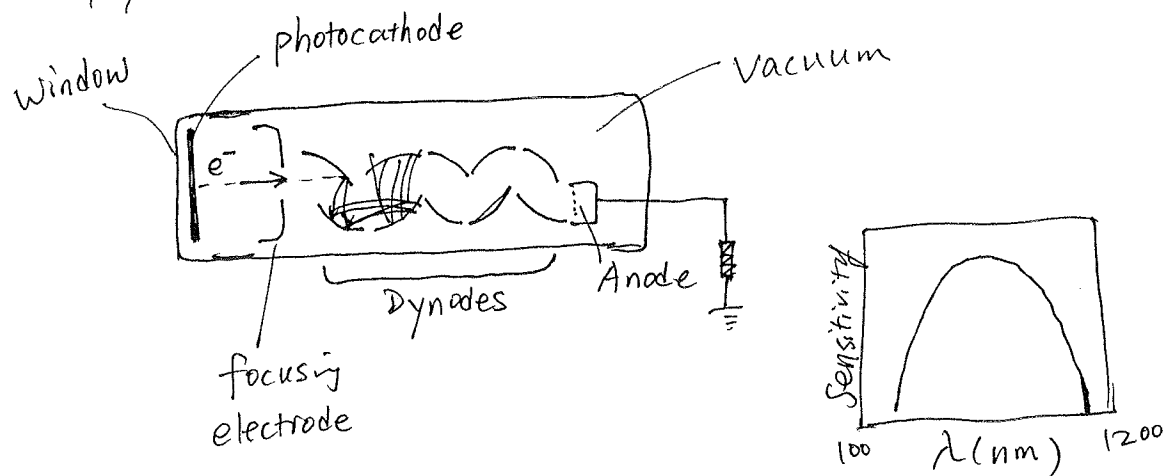 photocathode
Window
Vacuum
e⁻
Anode
Dynodes
focusing
electrode
Sensitivity
100
λ(nm)
1200